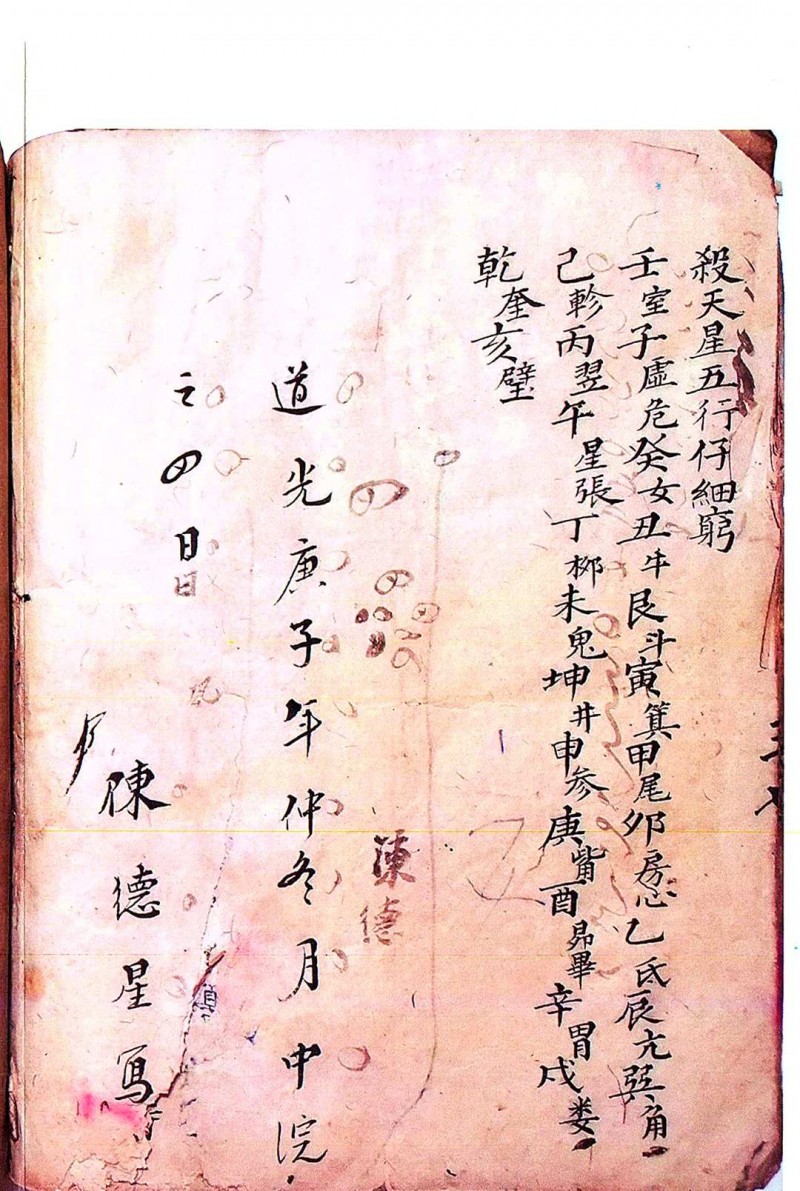 殺天星五行仔細窮
壬室子虛危癸女丑牛艮斗寅箕甲尾卯房心乙氐辰亢巽角
己軫丙翌午星張丁柳未鬼坤井申参庚觜酉昴畢辛胃戌娄
乾奎亥壁
陳德
道光庚子年仲冬月中浣
之日日
陳德星寫